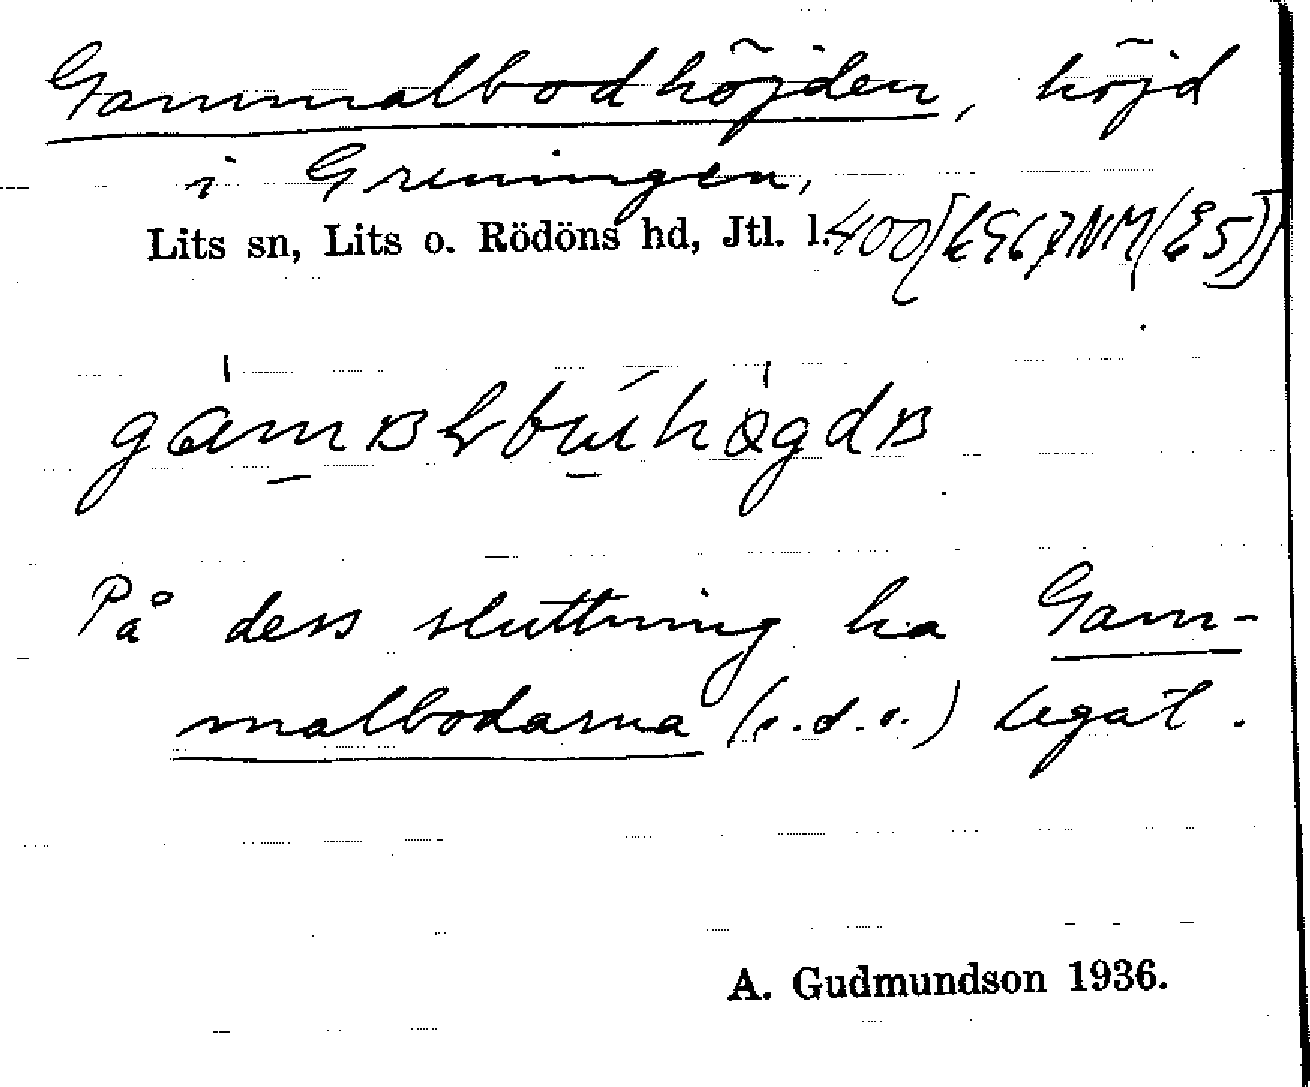 Gammalbodhöjden, höjd
i Greningen,
Lits sn, Lits o. Rödöns hd, Jtl. l.
På dess sluttning ha Gam-
malbodarna (s.d.o.) legat.
A. Gudmundson 1936.